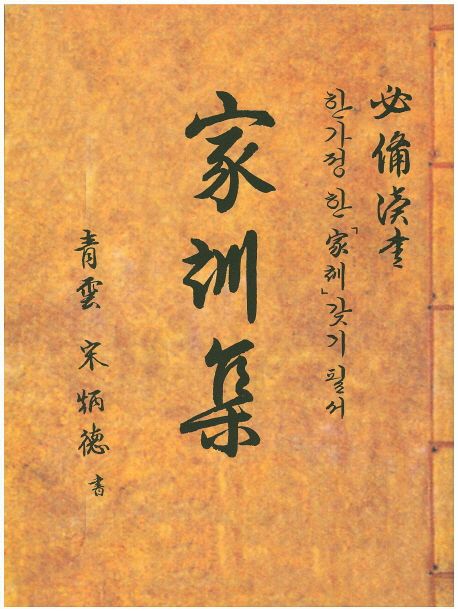 必備漢書
한가정 한「家訓」갖기 필서
家訓集
青雲 宋炳德 書